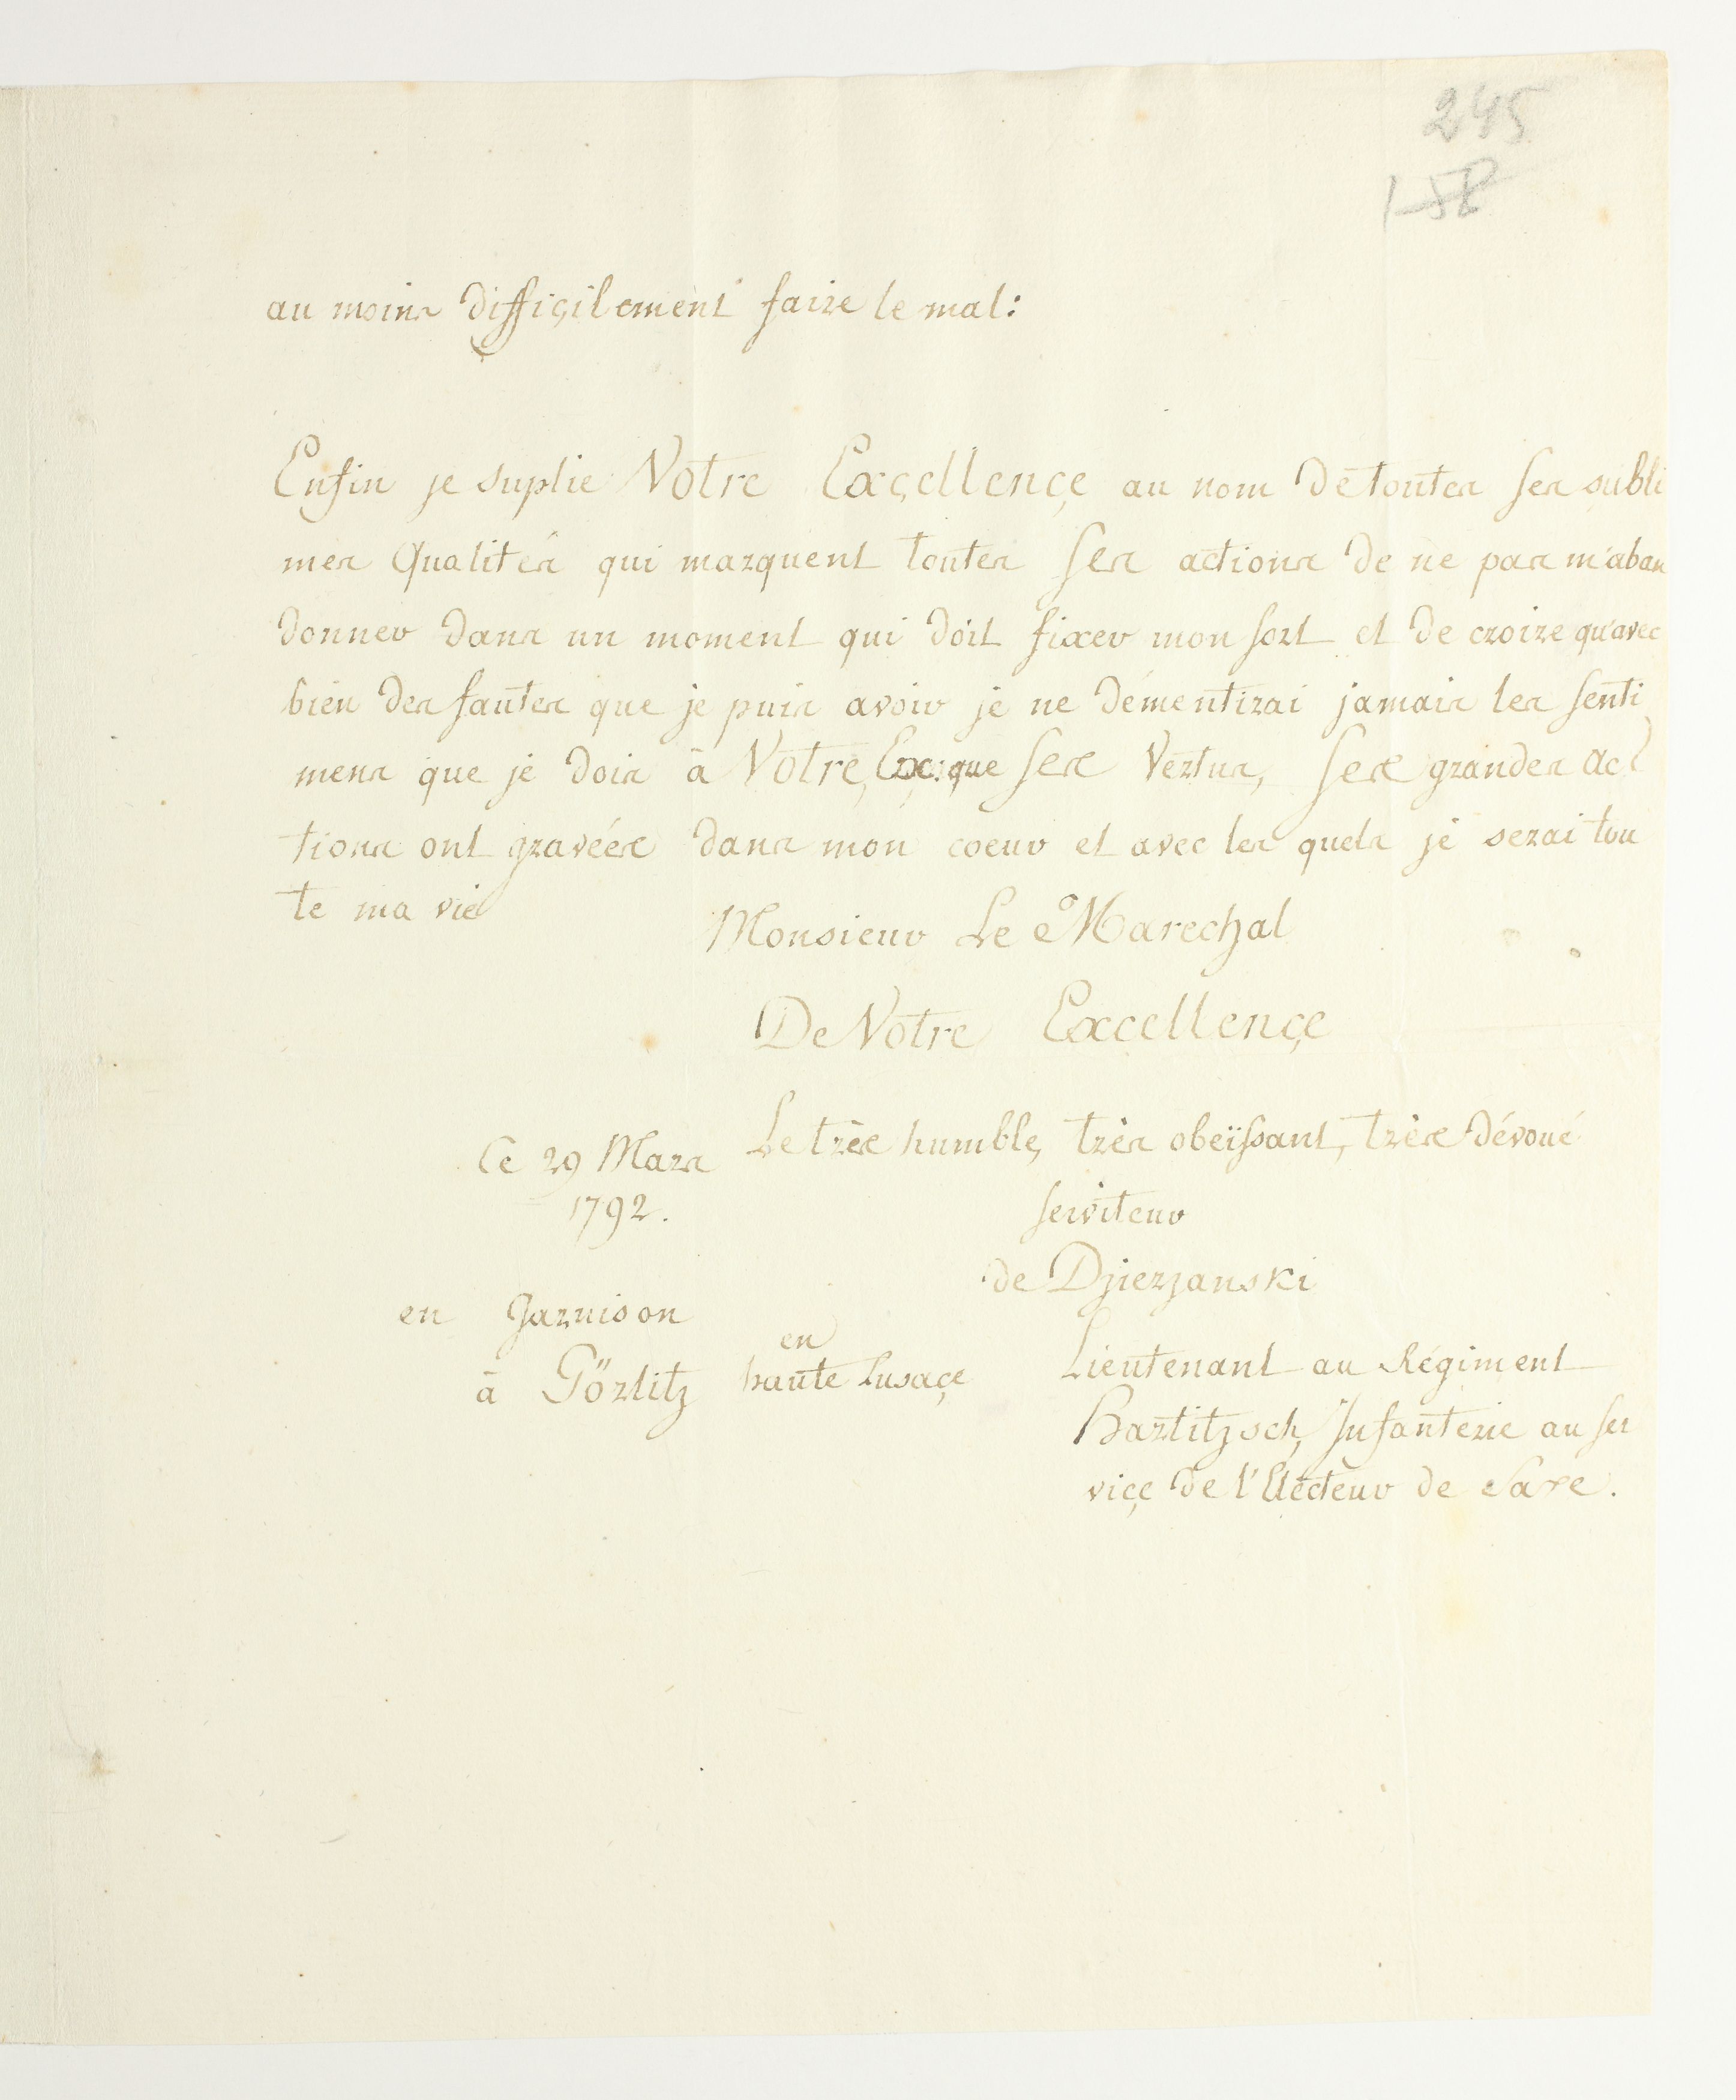 245
158
au moins difficilement faire le mal:
Enfin je suplie Votre Excellençe au nom de toutes ses subli
mes Qualités qui marquent toutes ses actions de ne pas m'aban
donner dans un moment qui doit fixer mon sort et de croire qu'avec
bien des fautes que je puis avoir je ne démentirai jamais les senti
mens que je dois à Votre Exc: que ses Vertus, ses grandes ac
tions ont gravées dans mon coeur et avec les quels je serai tou
te ma vie
Monsieur Le Marechal
De Votre Excellençe
Le très humble, très obeïssant, très dévoué
serviteur
de Dzierzanski
Ce 29 Mars
1792.
en Garnison
à Görlitz en haute Lusaçe
Lieutenant au Régiment
Hartitzsch, Infanterie au ser
viçe de l'Electeur de Saxe.